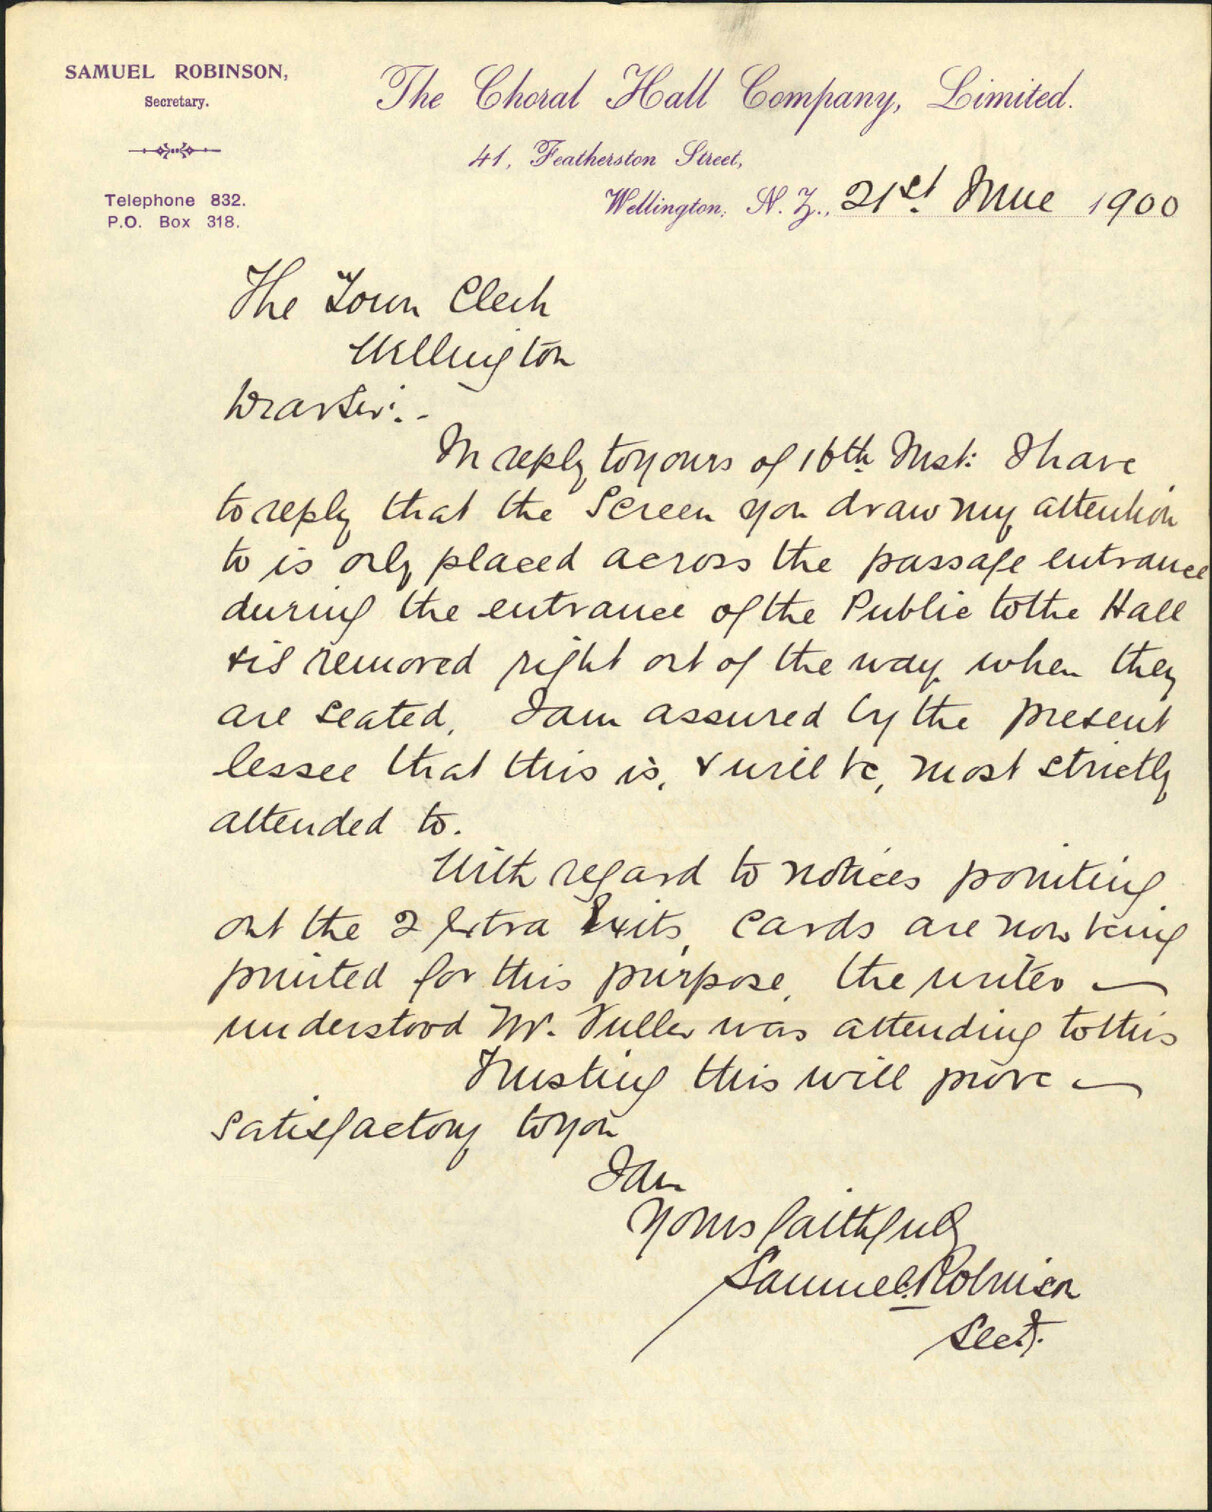 SAMUEL ROBINSON,
Secretary.
Telephone 832.
P.O. Box 318.
The Choral Hall Company, Limited.
41, Featherston Street,
Wellington, N. Z., 21st June 1900
The Town Clerk
Wellington
Dear Sir:-
In reply to yours of 16th Inst: I have
to reply that the Screen you draw my attention
to is only placed across the passage entrance
during the entrance of the Public to the Hall
& is removed right out of the way when they
are seated, I am assured by the present
lessee that this is, & will be, most strictly
attended to.
With regard to notices pointing
out the 2 Extra Exits, cards are now being
printed for this purpose, the writer —
understood Mr. Fuller was attending to this
Trusting this will prove —
satisfactory to you
I am
Yours faithfully
Samuel Robinson
Sect.